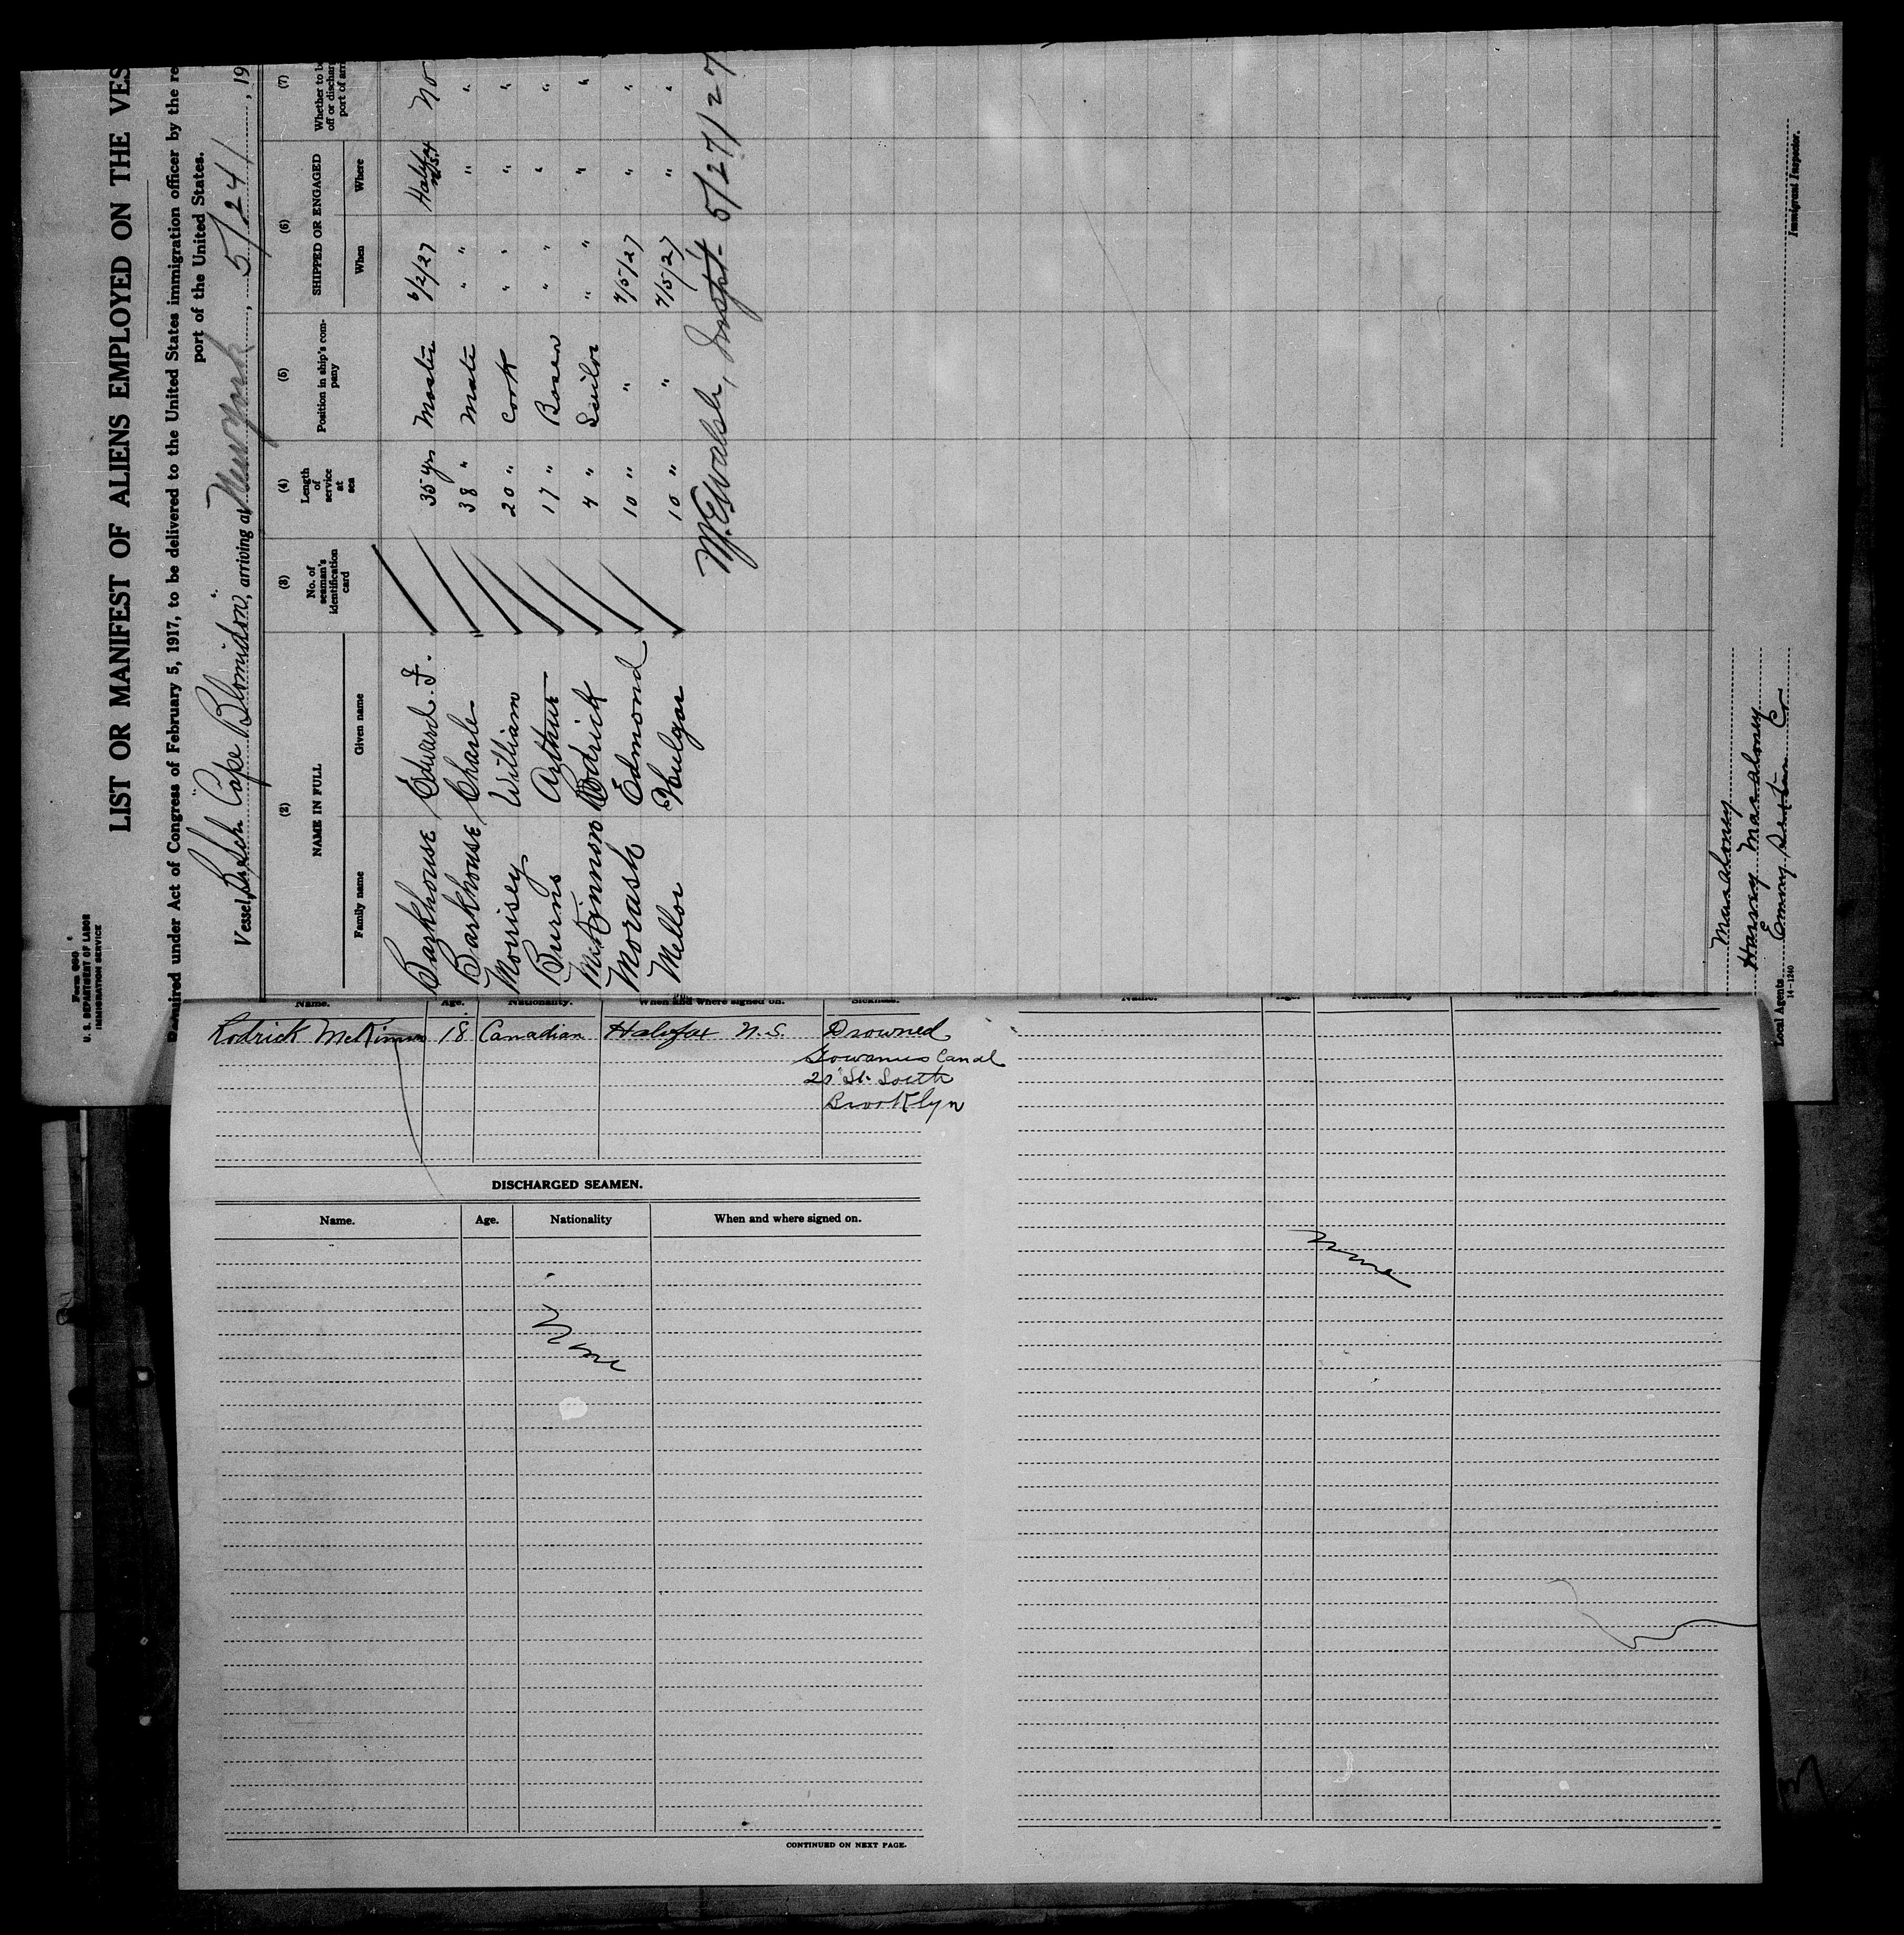 Form 680
U. S. DEPARTMENT OF LABOR
IMMIGRATION SERVICE
LIST OR MANIFEST OF ALIENS EMPLOYED ON THE VES
Required under Act of Congress of February 5, 1917, to be delivered to the United States immigration officer by the re
port of the United States.
Vessel Br. Sch. "Cape Blomidon", arriving at New York, 5/24/, 19
(2) (3) (4) (5) (6) (7)
NAME IN FULL No. of seaman's identification card Length of service at sea Position in ship's com- pany SHIPPED OR ENGAGED Whether to b off or dischar port of arr
Family name Given name When Where
Barkhouse Edward F. 35 yrs Master 6/2/27 Halifax N.S. No
Barkhouse Charle 38 " Mate " " " "
Morrisey William 20 " Cook " " " "
Burns Arthur 17 " Bosen " " " "
McKinnon Rodrick 4 " Sailor " " " "
Morash Edmond 10 " " 4/5/27 " "
Mellor 10 " " 4/5/27 " "
M.E. Walsh, Inspt 5/27/27
Macaloney
Harry Macaloney
Local Agents Emery Sexton Co
14-1240
Immigrant Inspector.
Name. Age. Nationality. When and where signed on. Sickness.
Rodrick McKinnon 18 Canadian Halifax N.S. Drowned
Gowanus Canal
20" St. South
Brooklyn
DISCHARGED SEAMEN.
Name. Age. Nationality When and where signed on.
None
CONTINUED ON NEXT PAGE.
Name. Age. Nationality When and where signed on.
None